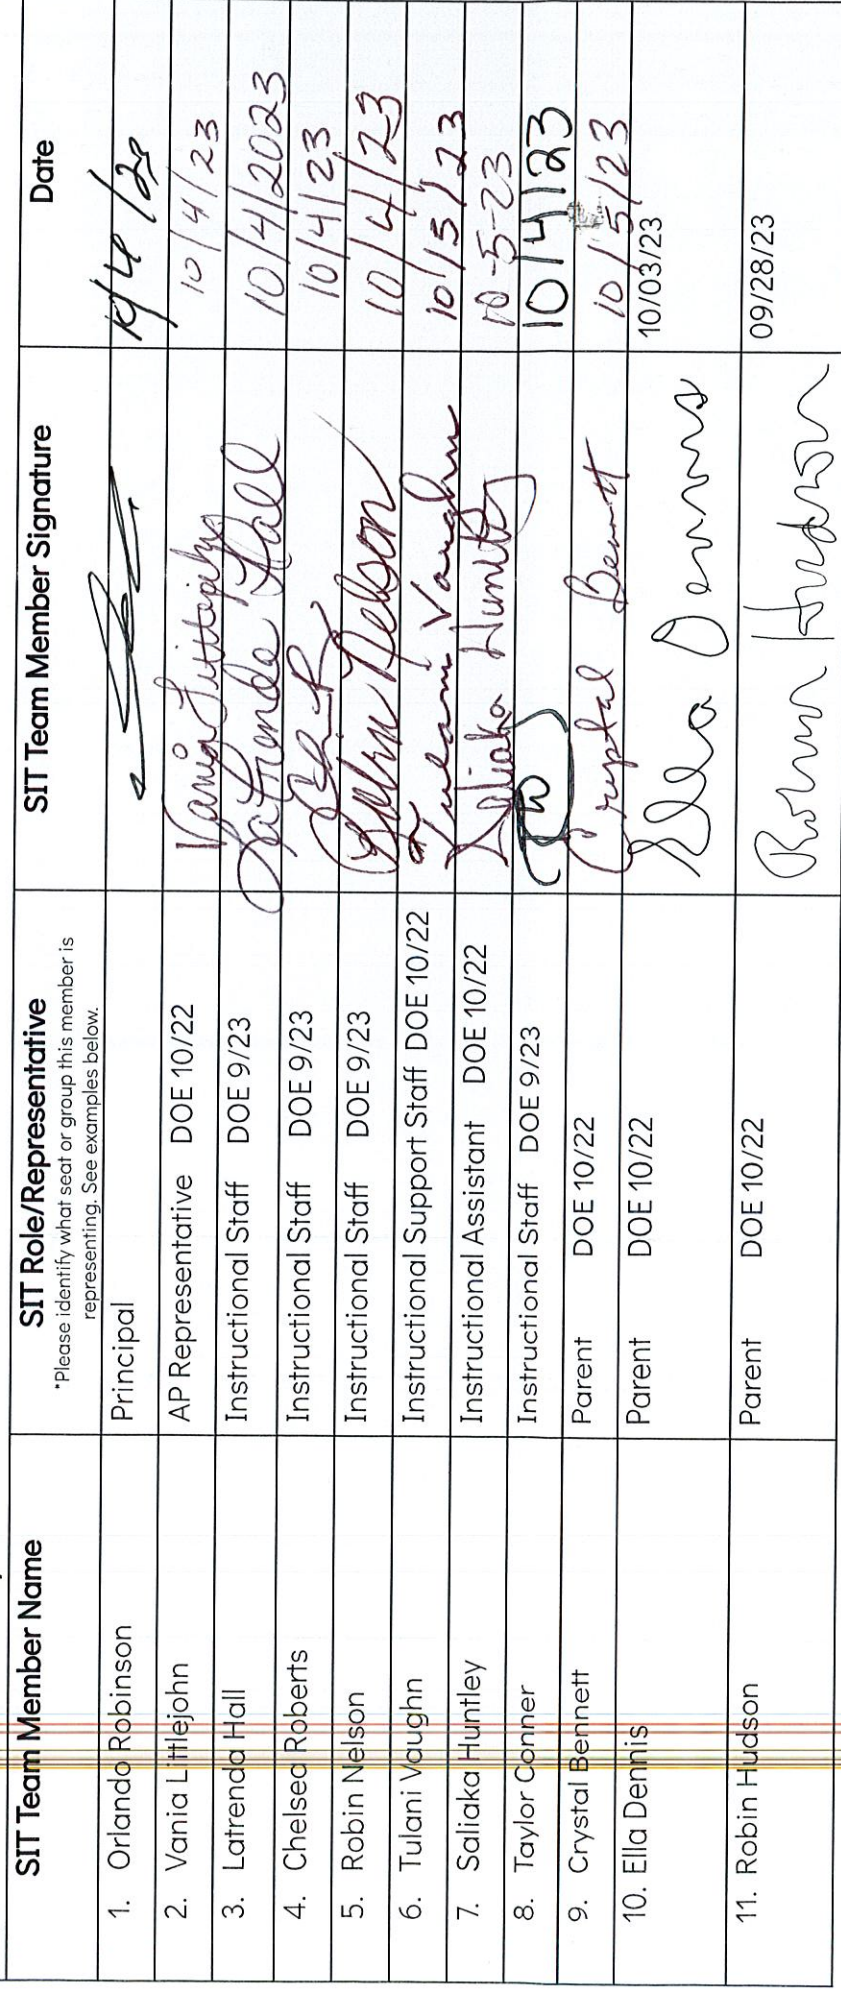 SIT Team Member Name SIT Role/Representative SIT Team Member Signature Date
*Please identify what seat or group this member is
representing. See examples below.
1. Orlando Robinson Principal
2. Vania Littlejohn AP Representative DOE 10/22 Vania Littlejohn 10/4/23
3. Latrenda Hall Instructional Staff DOE 9/23 LaTrenda Hall 10/4/2023
4. Chelsea Roberts Instructional Staff DOE 9/23 10/4/23
5. Robin Nelson Instructional Staff DOE 9/23 Robin Nelson 10/4/23
6. Tulani Vaughn Instructional Support Staff DOE 10/22 Tulani Vaughn 10/5/23
7. Saliaka Huntley Instructional Assistant DOE 10/22 Saliaka Huntley 10-5-23
8. Taylor Conner Instructional Staff DOE 9/23 10/4/23
9. Crystal Bennett Parent DOE 10/22 Crystal Bennett 10/5/23
10. Ella Dennis Parent DOE 10/22 Ella Dennis 10/03/23
11. Robin Hudson Parent DOE 10/22 Robin Hudson 09/28/23